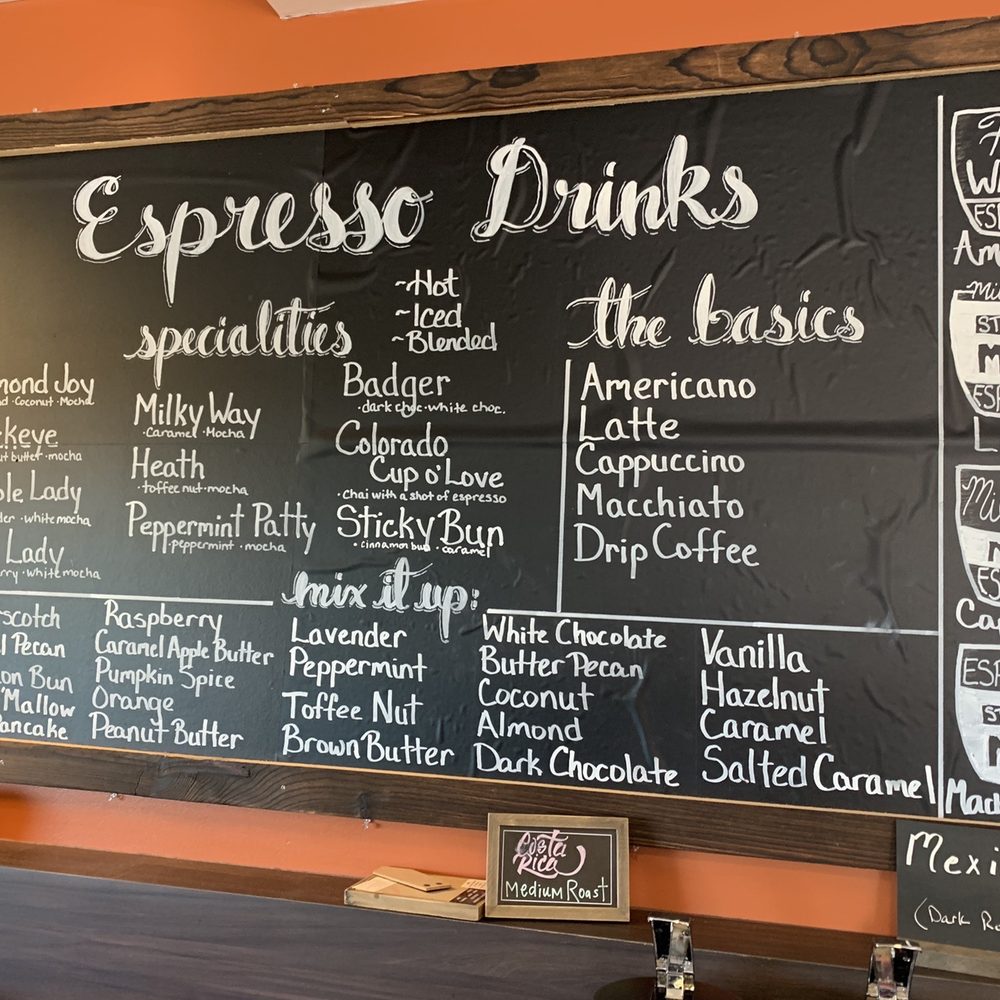 Espresso Drinks
specialities
~Hot
~Iced
~Blended
mond Joy
·Coconut·Mocha
keye
t butter·mocha
le Lady
der·white mocha
Lady
rry·white mocha
Milky Way
·Caramel·Mocha
Heath
·toffee nut·mocha
Peppermint Patty
·peppermint·mocha
Badger
·dark choc·white choc.
Colorado
Cup o'Love
·Chai with a shot of espresso
Sticky Bun
·cinnamon bun·caramel
the basics
Americano
Latte
Cappuccino
Macchiato
Drip Coffee
mix it up:
rscotch
l Pecan
on Bun
'Mallow
Pancake
Raspberry
Caramel Apple Butter
Pumpkin Spice
Orange
Peanut Butter
Lavender
Peppermint
Toffee Nut
Brown Butter
White Chocolate
Butter Pecan
Coconut
Almond
Dark Chocolate
Vanilla
Hazelnut
Caramel
Salted Caramel
Am
Mi
ST
M
ESP
L
Mi
Ca
ESP
ST
M
Mac
Costa
Rica
Medium Roast
Mexi
(Dark Ro